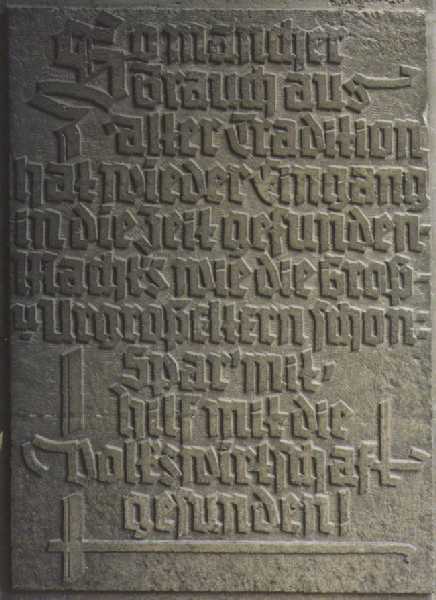 So mancher
Brauch aus
alter Tradition
hat wieder Eingang
in die Zeit gefunden.
Macht's wie die Groß-
u Urgroßeltern schon-
Spar' mit,
hilf mit die
Volkswirtschaft
gesunden!